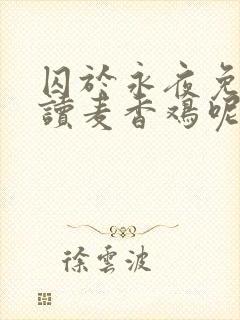 囚於永夜免
讀麦香鸡呢
徐雲波